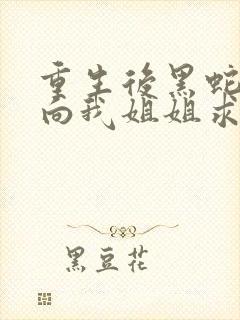 重生後黑蛇
向我姐姐求
黑豆花